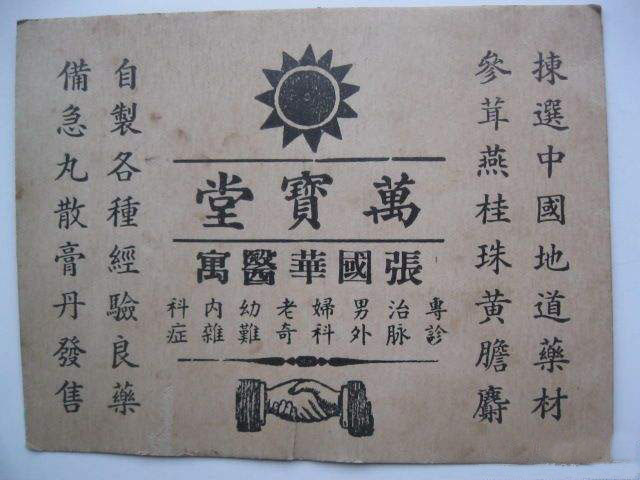 揀選中國地道藥材
參茸燕桂珠黃膽麝
萬寶堂
張國華醫寓
專治男婦老幼內科
診脈外科奇難雜症
自製各種經驗良藥
備急丸散膏丹發售